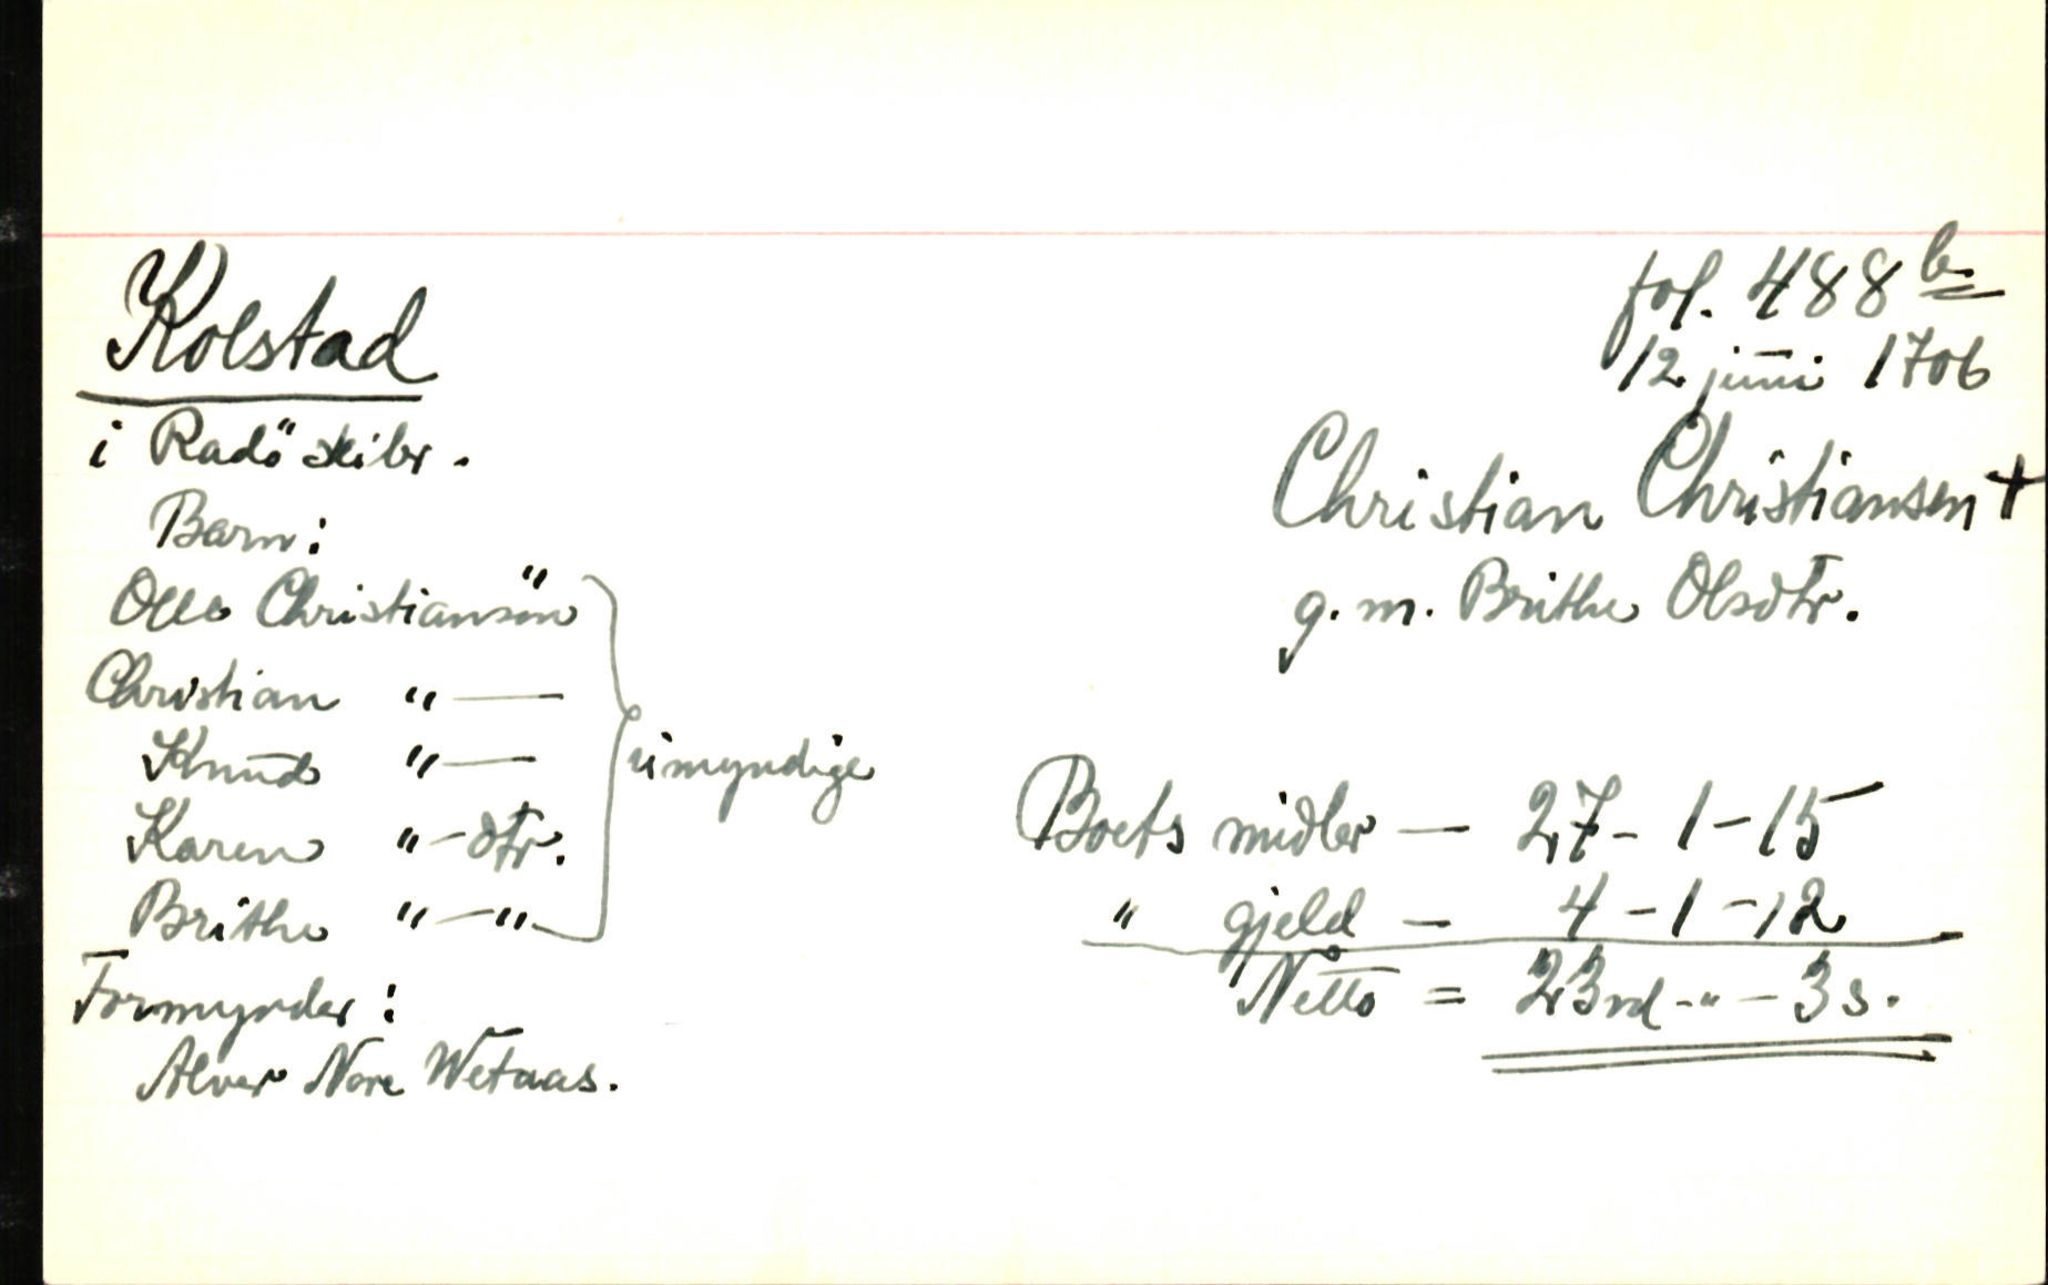 Kolstad
i Radö skibr.
Barn:
Olle Christiansön
Christian "—
Knud "—
Karen "—dtr.
Brithe "—"
umyndige
Formynder:
Alver Nore Wetaas.
fol. 488 b
12 juni 1706
Christian Christiansen +
g. m. Brithe Olsdtr.
Boets midler — 27 - 1 - 15
" gjeld — 4 - 1 - 12
Netto = 23 rd - " - 3 s.